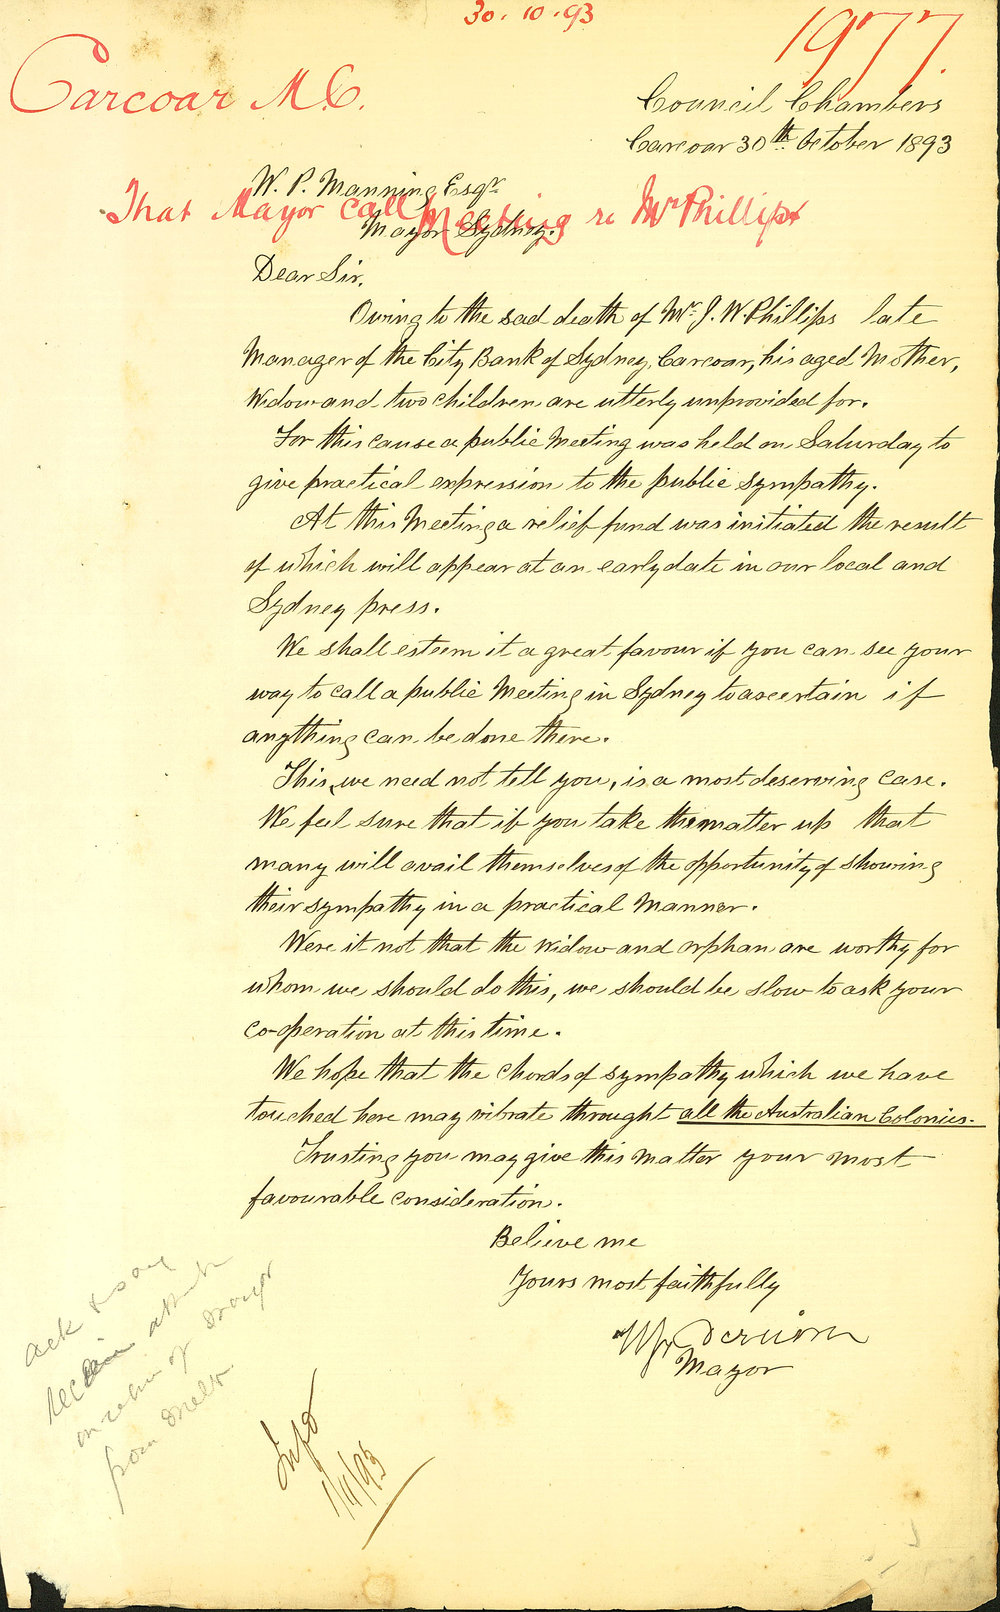 30.10.93
1977.
Carcoar M.C.
Council Chambers
Carcoar 30th October 1893
W. P. Manning Esqr
That Mayor call Meeting re Mr Phillips
Mayor Sydney.
Dear Sir,
Owing to the sad death of Mr. J. W. Phillips late
Manager of the City Bank of Sydney, Carcoar, his aged Mother,
Widow and two children are utterly unprovided for.
For this cause a public Meeting was held on Saturday to
give practical expression to the public sympathy.
At this Meeting a relief fund was initiated the result
of which will appear at an early date in our local and
Sydney press.
We shall esteem it a great favour if you can see your
way to call a public Meeting in Sydney to ascertain if
anything can be done there.
This, we need not tell you, is a most deserving case.
We feel sure that if you take the matter up that
many will avail themselves of the opportunity of showing
their sympathy in a practical Manner.
Were it not that the widow and orphan are worthy for
whom we should do this, we should be slow to ask your
co-operation at this time.
We hope that the chords of sympathy which we have
touched here may vibrate throught all the Australian Colonies.
Trusting you may give this matter your most
favourable consideration.
Believe me
Yours most faithfully
Mayor
ack & say
on return of Mayor
from Melb
1/11/93